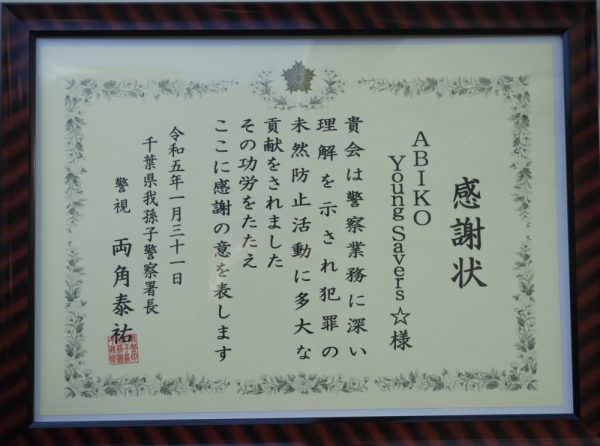 感謝状
ABIKO
Young Savers☆様
貴会は警察業務に深い
理解を示され犯罪の
未然防止活動に多大な
貢献をされました
その功労をたたえ
ここに感謝の意を表します
令和五年一月三十一日
千葉県我孫子警察署長
警視 両角泰祐